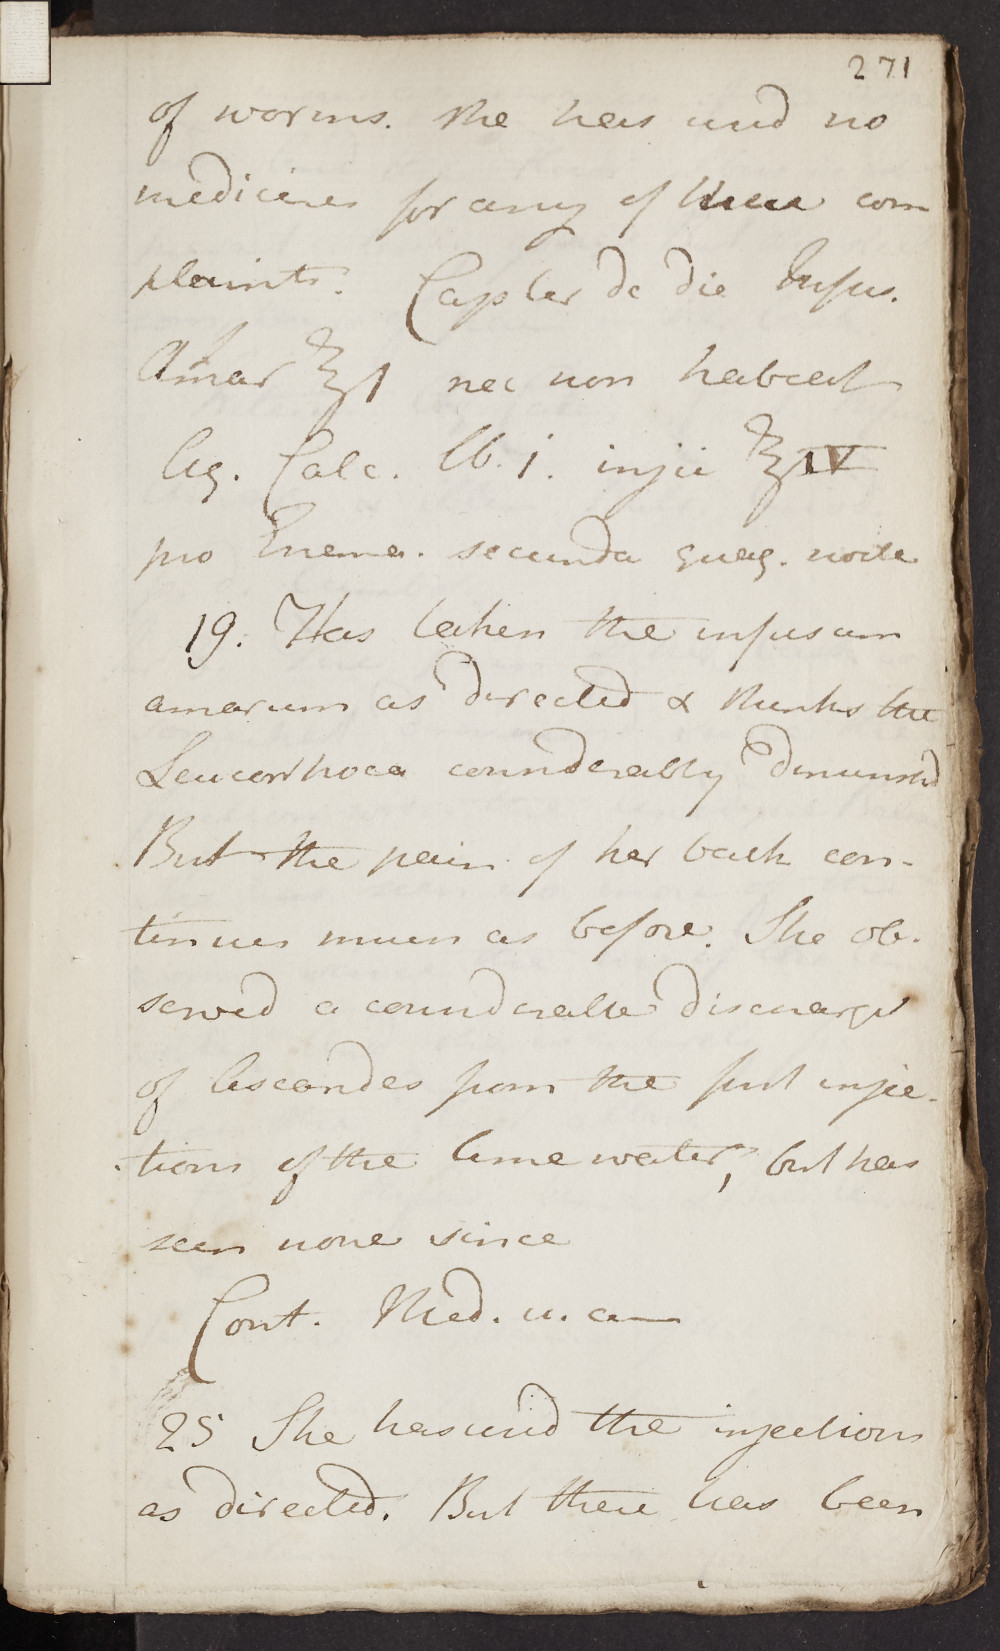 271
of worms. She has used no
medicines for any of these com
plaints. Cap ter de die Infus.
Amar ℥I nec non habeat
Aq. Calc. lb. j. injic ℥IV
pro Enema. secunda quaq. nocte
19. Has taken the infusum
amarum as directed & thinks the
Leucorrhoea considerably diminishd
But the pain of her back con-
tinues much as before. She ob-
served a considerable discharge
of Ascarides from the first injec-
tions of the lime water, but has
seen none since
Cont. Med. u. a
25 She has used the injections
as directed. But there has been